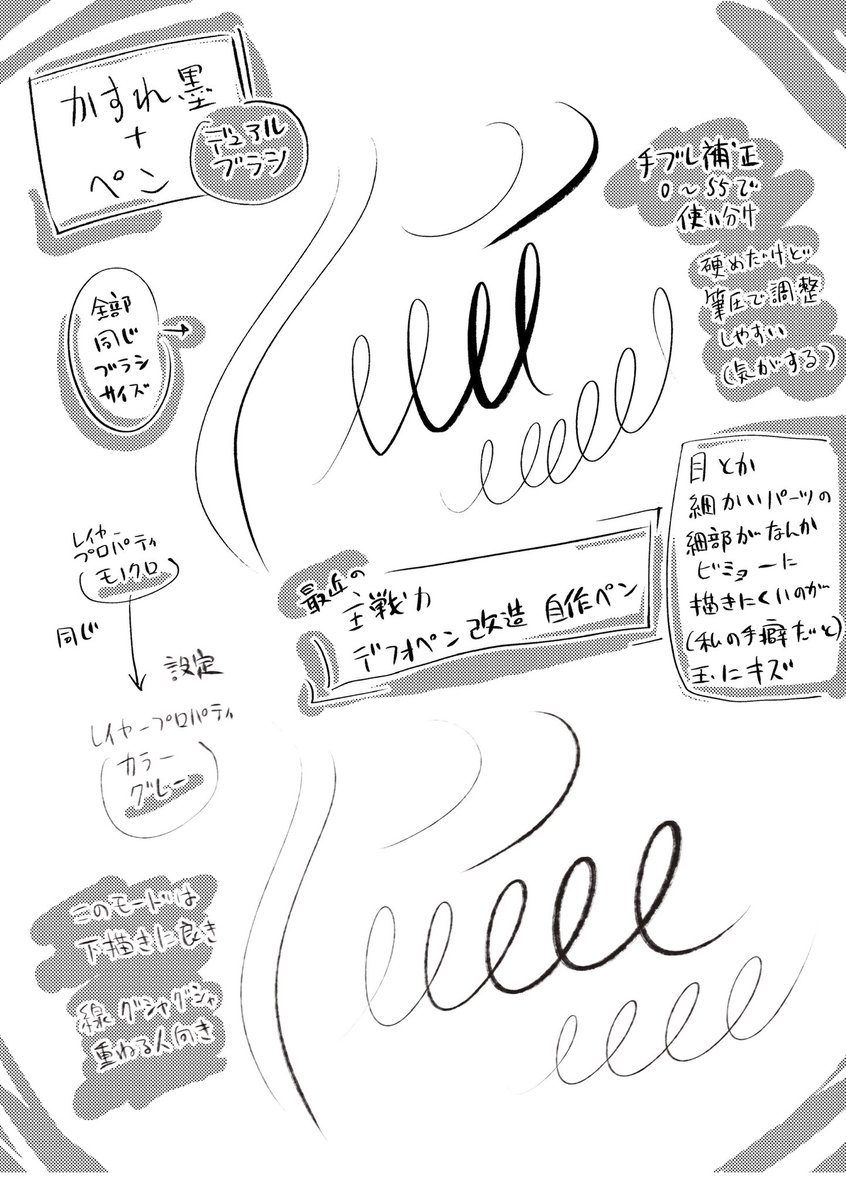 かすれ墨
+
ペン
デュアル
ブラシ
手ブレ補正
0〜55で
使い分け
硬めだけど
筆圧で調整
しやすい
(気がする)
全部
同じ
ブラシ
サイズ
→
目とか
細かいパーツの
細部がなんか
ビミョーに
描きにくいのが
(私の手癖だと)
玉にキズ
レイヤー
プロパティ
(モノクロ)
同じ
設定
最近の
主戦力
デフォペン改造 自作ペン
レイヤープロパティ
(カラー
グレー)
このモードは
下描きに良き
線グシャグシャ
重ねる人向き